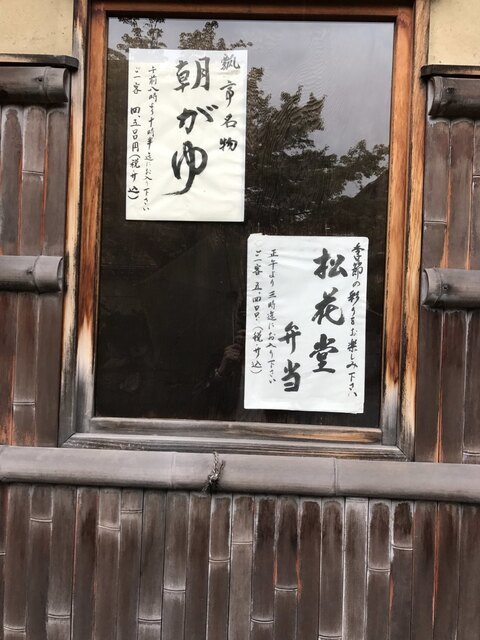 瓢亭名物
朝がゆ
午前八時より十時半迄にお入り下さい
御一客 四、五〇〇円(税・サ込)
季節の彩りをお楽しみ下さい
松花堂
弁当
正午より三時迄にお入り下さい
御一客 五、四〇〇、(税・サ込)